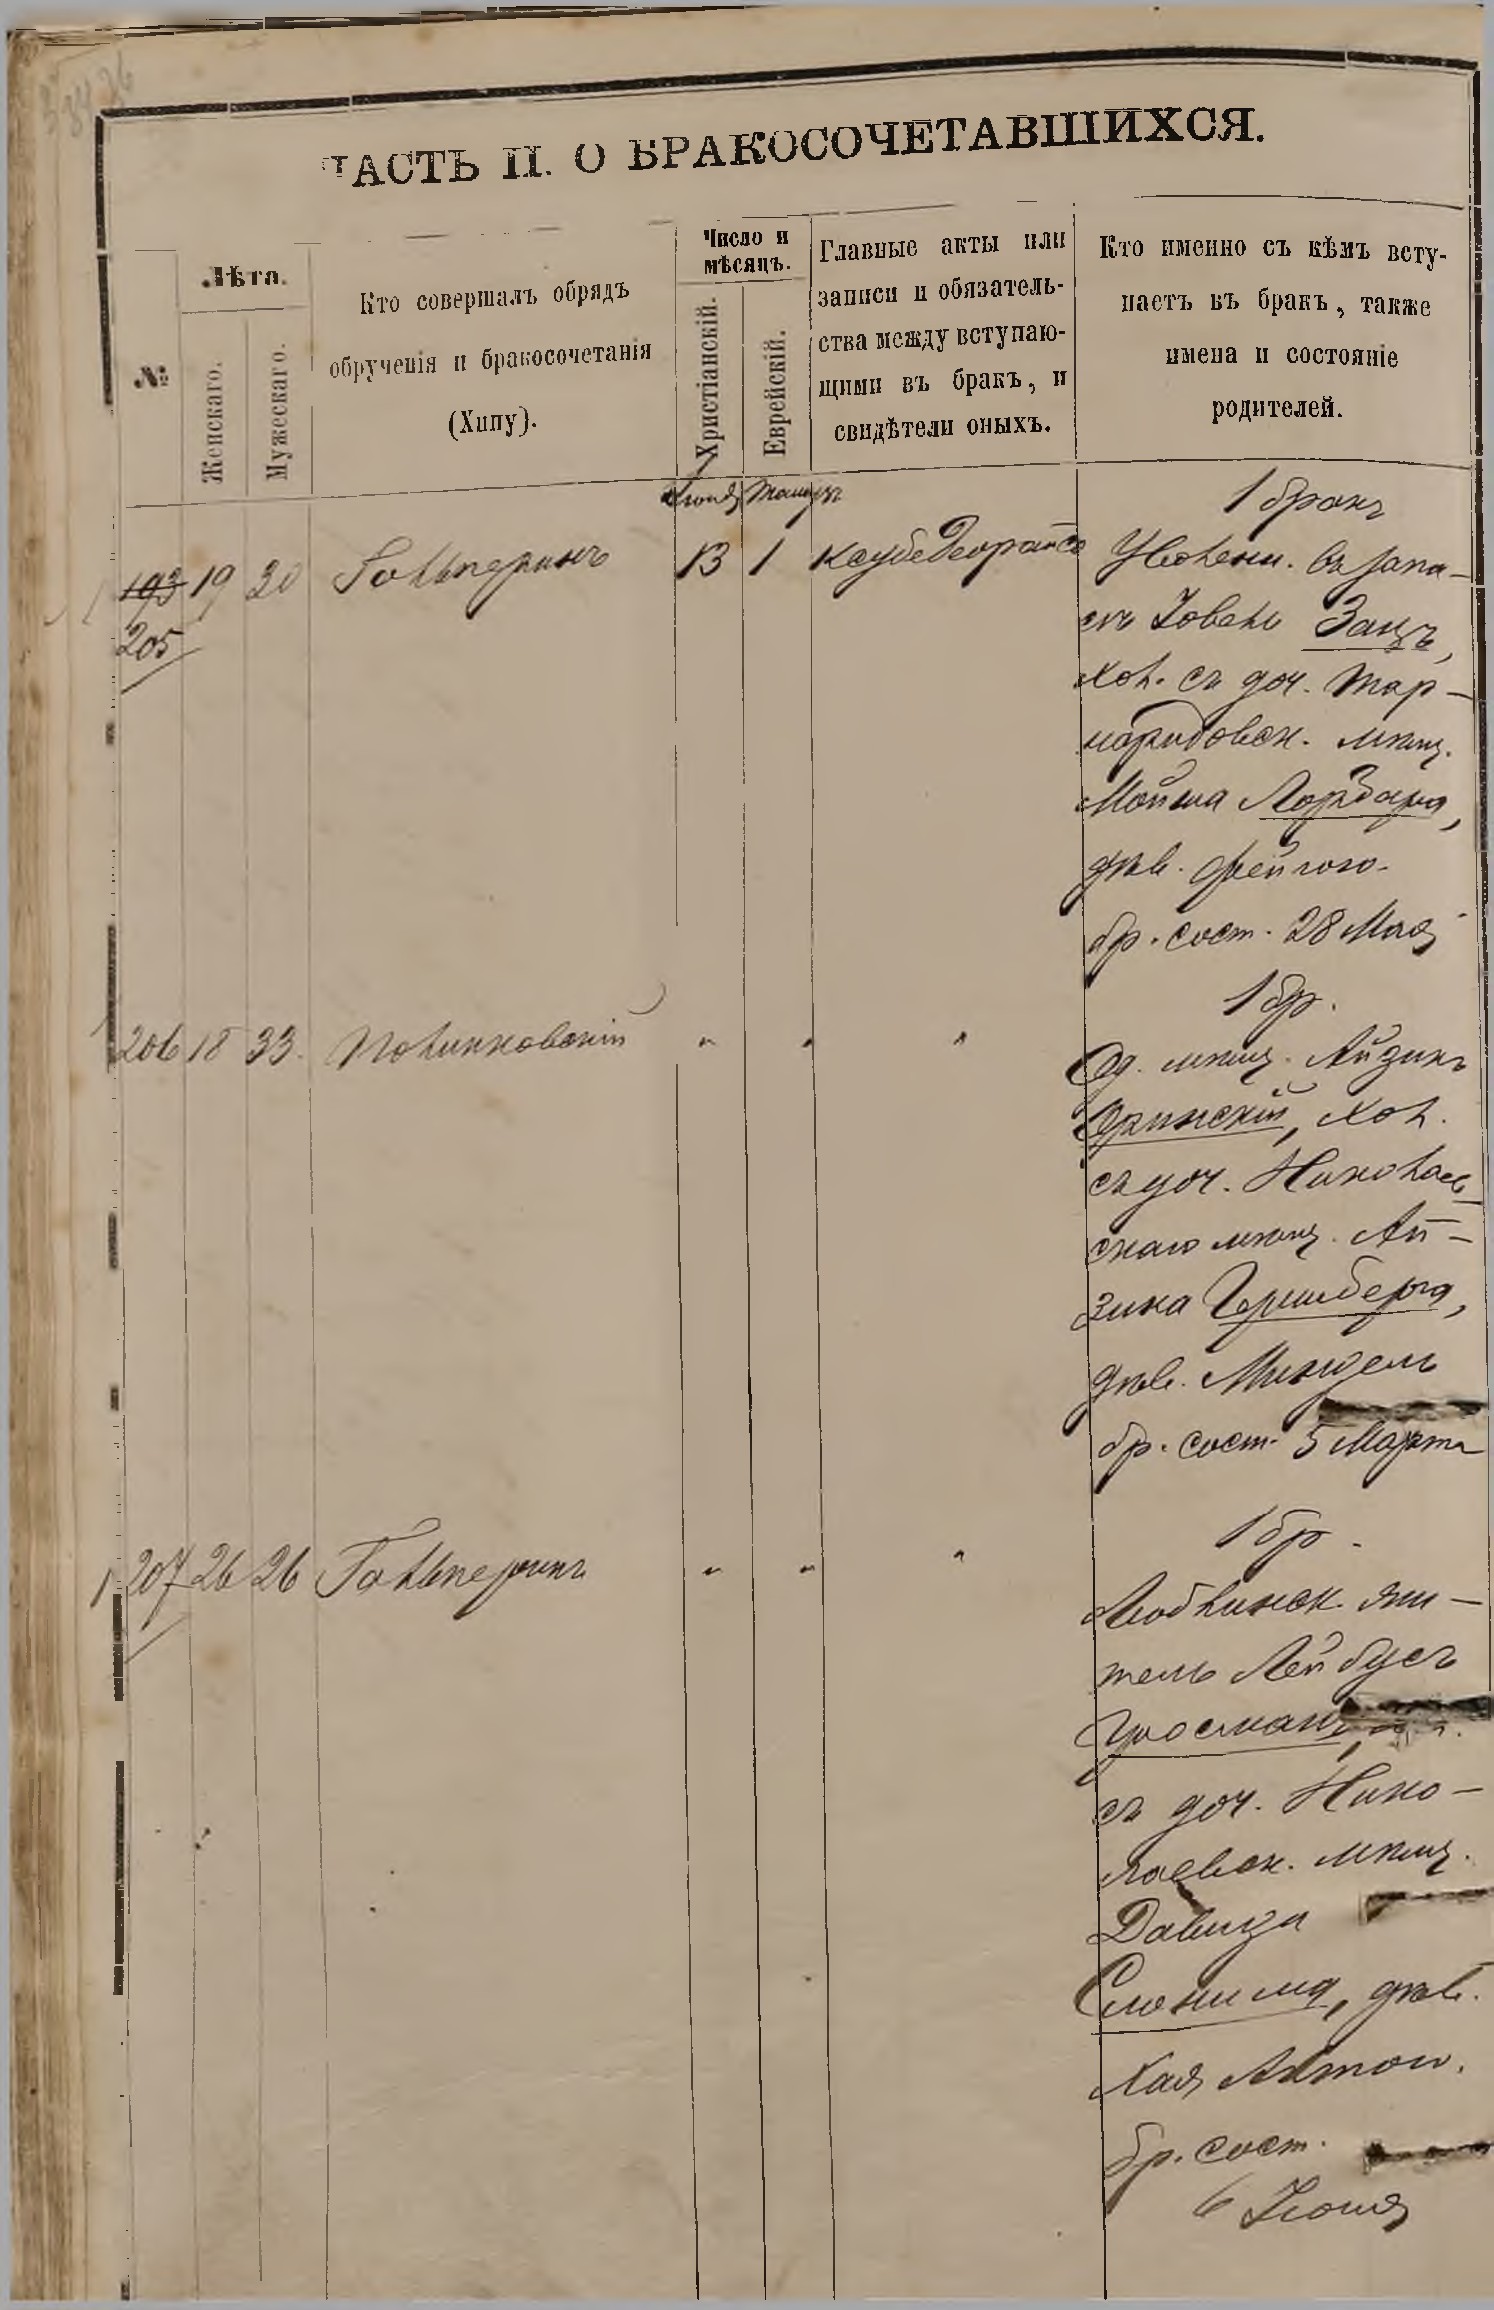 ЧАСТЬ II. О БРАКОСОЧЕТАВШИХСЯ.
№
Лѣта.
Женскаго.
Мужескаго.
Кто совершалъ обрядъ
обрученія и бракосочетанія
(Хипу).
Число и
мѣсяцъ.
Христіанскій.
Еврейскій.
Главные акты или
записи и обязатель-
ства между вступаю-
щими въ бракъ, и
свидѣтели оныхъ.
Кто именно съ кѣмъ всту-
паетъ въ бракъ, также
имена и состояніе
родителей.
Іюня Тамузъ
193 19 30 Гальперинъ 13 1
205
1 бракъ
Уволен. въ запа-
съ Іовель Зацъ,
хол. съ доч.
мѣщ.
Мойша
дѣв. Фейгою.
бр. сост. 28 Мая
206 18 33 Полинковскій " " "
1 бр.
Од. мѣщ. Айзикъ
хол.
съ доч. Николаев
скаго мѣщ. Ай-
зика Гершберга,
дѣв. Миндель
бр. сост. 5 Марта
207 26 26 Гальперинъ " " "
1 бр.
Люблинск. жи-
тель Лейбусъ
Гросманъ,
съ доч. Нико-
лаевск. мѣщ.
Давида
Слонима, дѣв.
Хая
бр. сост.
6 Іюня